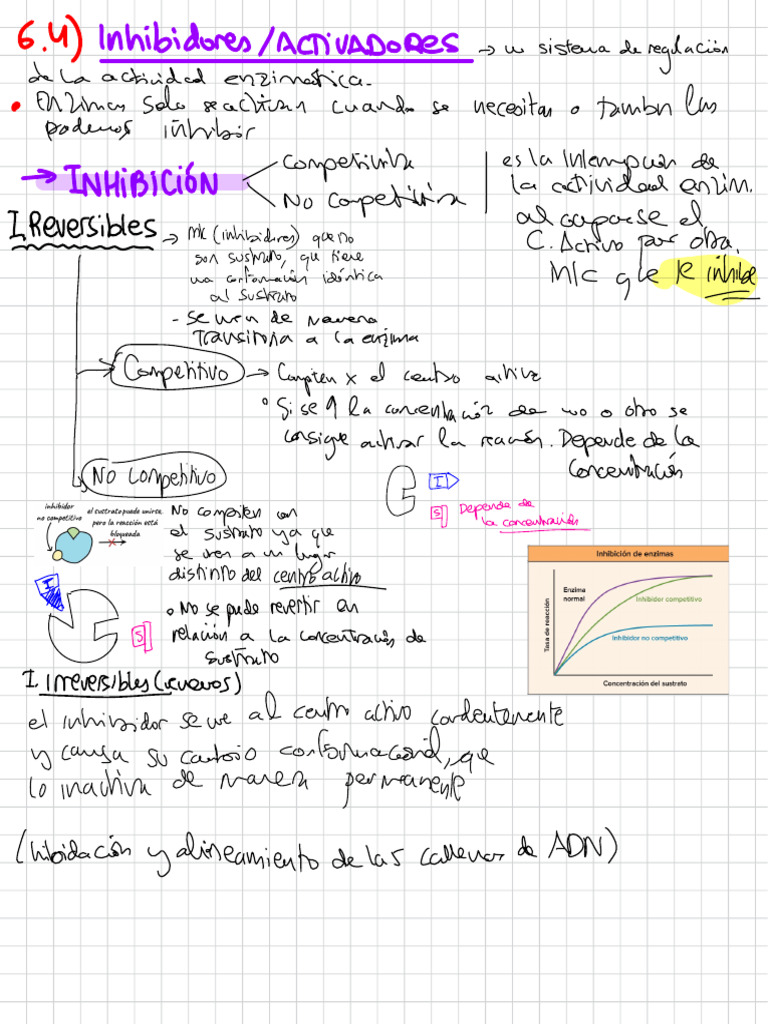 6.4) Inhibidores/ACTIVADORES → un sistema de regulación
de la actividad enzimática.
• Enzimas solo se activan cuando se necesitan o también las
podemos inhibir
→ INHIBICIÓN
Competitiva
No Competitiva
es la interrupción de
la actividad enzim.
al ocuparse el
C. Activo por otra
que le inhibe
I. Reversibles
→ (inhibidores) que no
son sustrato, que tiene
una conformación idéntica
al sustrato
- se unen de manera
transitoria a la enzima
Competitivo → Compiten x el centro activo
• Si se ↑ la concentración de uno o otro se
consigue activar la reación. Depende de la
concentración
No Competitivo
I
S
Depende de
la concentración
inhibidor
no competitivo
el sustrato puede unirse,
pero la reacción está
bloqueada
No compiten con
el sustrato ya que
se unen a un lugar
distinto del centro activo
• No se puede revertir en
relación a la concentración de
sustrato
I
S
Inhibición de enzimas
Enzima
normal
Inhibidor competitivo
Inhibidor no competitivo
Tasa de reacción
Concentración del sustrato
I. irreversibles (venenos)
el inhibidor se une al centro activo
y causa su cambio conformacional, que
lo inactiva de manera permanente
y alineamiento de las de ADN)